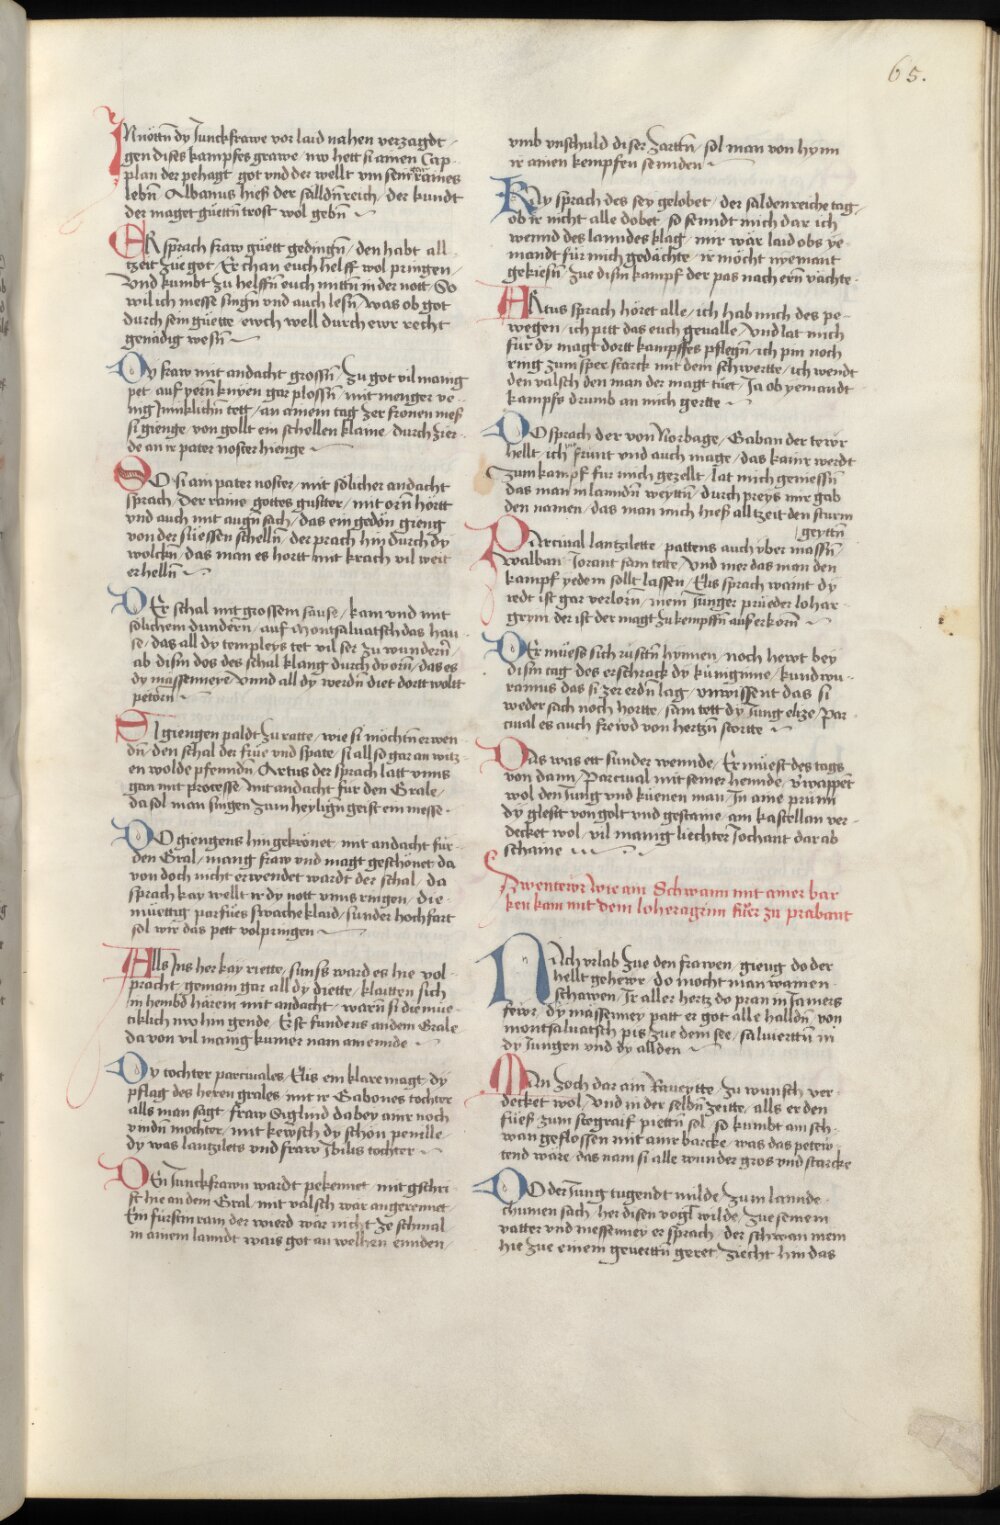 65.
IN nöttn̄ dy Junckfrawe vor laid nahen verzagdt
gen dises kampfes grawe / nw hett si ainen Cap
plan der pehagt got vnd der wellt vm sein raines
lebn̄ / Albanus hieß der sälldn̄reich / der kundt
der maget güettn̄ trost wol gebn̄
ER sprach fraw güett gedingn̄ / den habt all
tzeit züe got / Er chan euch helff wol pringen /
Vnd kumbt zu helffn̄ euch mittn̄ in der nott So
wil ich messe singn̄ vnd auch lesn̄ / was ob got
durch sein güette / ewch well durch ewr recht
genädig wesn̄
Dy fraw mit andacht grossn̄ / zu got vil manig
pet auf yern̄ knyen gar plossn̄ / mit menger ve
nig Jnniklichn̄ tett / an ainem tag zer fronen meß
si gienge / von gollt ein schellen klaine / durch zier
de an ir pater noster hienge
DO si am pater noster / mit sölicher andacht
sprach / Der raine gottes güstter / mit orn̄ hörtt
vnd auch mit augn̄ sach / das ein gedön gieng
von der sliessen schelln̄ / der prach hin durch dy
wolckn̄ / das man es hortt mit krach vil weit
erhelln̄
DEr schal mit grossem sause / kam vnd mit
sölichem dundern / auf Montsaluatsch das hau
se / das all dy templeys tet vil ser zu wundern̄ /
ab dism̄ dos des schal klang durch dy orn̄ / das es
dy massenneye / vnnd all dy werdn̄ diet dortt woltt
petörn̄
SI giengen paldt zu ratte / wie si möchtn̄ erwen
dn̄ / den schal der frue vnd spate / si all so gar an witz
en wolde pfenndn̄ / Artus der sprach latt vnns
gan mit processe / mit andacht für den Grale /
da sol man singen zum heylign̄ geist ein messe
DO giengens hin gekrönet / mit andacht für
den Gral / mang fraw vnd magt geschönet da
von doch nicht erwendet wardt der schal / da
sprach kay wellt ir dy nott vnns ringen / die
müettig parfües swache klaid / sunder hochfart
sol wir das pett volpringen
Alls Jns her kay riette / sunss ward es hie vol
pracht / gemain gar all dy diette / klaitten sich
in hembd härein mit andacht / warn si diemüe
tiklich nw hin gende / Erst fundens an dem Grale
da von vil maing kumer nam am ennde
Dy tochter parciuales / Elis ein klare magt / dy
pflag des heren grales / mit ir Gabones tochter
alls man sagt / fraw Siglind da bey ainr noch
vindn̄ möchter / mit kewsch dy schön penille /
dy was lantzilets vnd fraw Jbilis tochter
DEn Junckfrawn wardt pekennet / mit gschri
fft hie an dem Gral / mit valsch wär angerennet
Ein fürstin rain der wierd wär nicht ze schmal
in ainem lanndt wais got an welhen ennden /
vmb vnschuld diser zarttn̄ / sol man von hynn
ir ainen kempfen sennden
KAy sprach des sey gelobet / der sälden reiche tag
ob ir nicht alle dobet / so senndt mich dar ich
wennd des lanndes klag / mir wär laid obs ye
mandt für mich gedächte / ir möcht nyemant
gekiesn̄ / züe dism̄ kampf der pas nach ern̄ vächte
ARtus sprach höret alle / ich hab mich des pe
wegen / ich pitt das euch geualle / Vnd lat mich
für dy magt dortt kampffes pflegn̄ / ich pin noch
ring zum sper starck mit dem schwertte / ich wendt
den valsch den man der magt tüet / Ja ob yemandt
kampfs drumb an mich gertte
DO sprach der von Norbage / Gaban der tewr
hellt / ich frunt vnd auch mage / das kainr werdt
zum kampf für mich gezellt / lat mich geniessn̄
das man in lanndn̄ weyttn̄ / durch preys mir gab
den namen / das man mich hieß all tzeit den sturm
geyttn̄
PArciual lantzilette / pattens auch vber massn̄
walban Jorant sam tette / Vnd mer das man den
kampf yedem sollt lassen / Elis sprach waint dy
redt ist gar verlorn̄ / mein Junger prüeder lohar
grym der ist der magt zu kempffn̄ auserkorn̄
DEr müese sich rüstn̄ hynnen / noch hewt bey
dism̄ tag / des erschrack dy künginne / kundwir
ramus das si zer erdn̄ lag / vnwissent das si
weder sach noch hortte / sam tett dy Jung elize / Par
ciual es auch frewd von hertzn̄ stortte
Das was ett sunder wennde / Er müest des tags
von dann / Parciual mit seiner hennde / verwappet
wol den Jung vnd küenen man / Jn aine prünn
dy glestt von golt vnd gestaine / am kastellan ver
decket wol / vil manig liechter Jochant dar ab
schaine
Awentewr wie ain Schwann mit ainer bar
ken kam mit dem loheragrim füer zu prabant
NAch vrlab züe den frawen / gieng do der
hellt gehewr / do mocht man wainen
schawen / Jr aller hertz do pran in Jamers
fewr / dy massenney patt er got alle halldn̄ / von
montsaluatsch pis züe dem see / saluierttn̄ in
dy Jungen vnd dy allden
MAn zoch dar ain Raueytte / zu wunsch ver
decket wol / Vnd in der selbn̄ zeitte / alls er den
füeß zum stegraif piettn̄ sol / so kumbt ain sch
wan geflossen mit ainr barcke / was das petew
tend wäre / das nam si alle wunder gros vnd starcke
DO der Jung tugendt milde / zum lannde
chumen sach / her disen vogl wilde / züe seinem
vatter vnd messenney er sprach / der schwan mein
hie züe einem geuerttn̄ geret / ziecht hin das